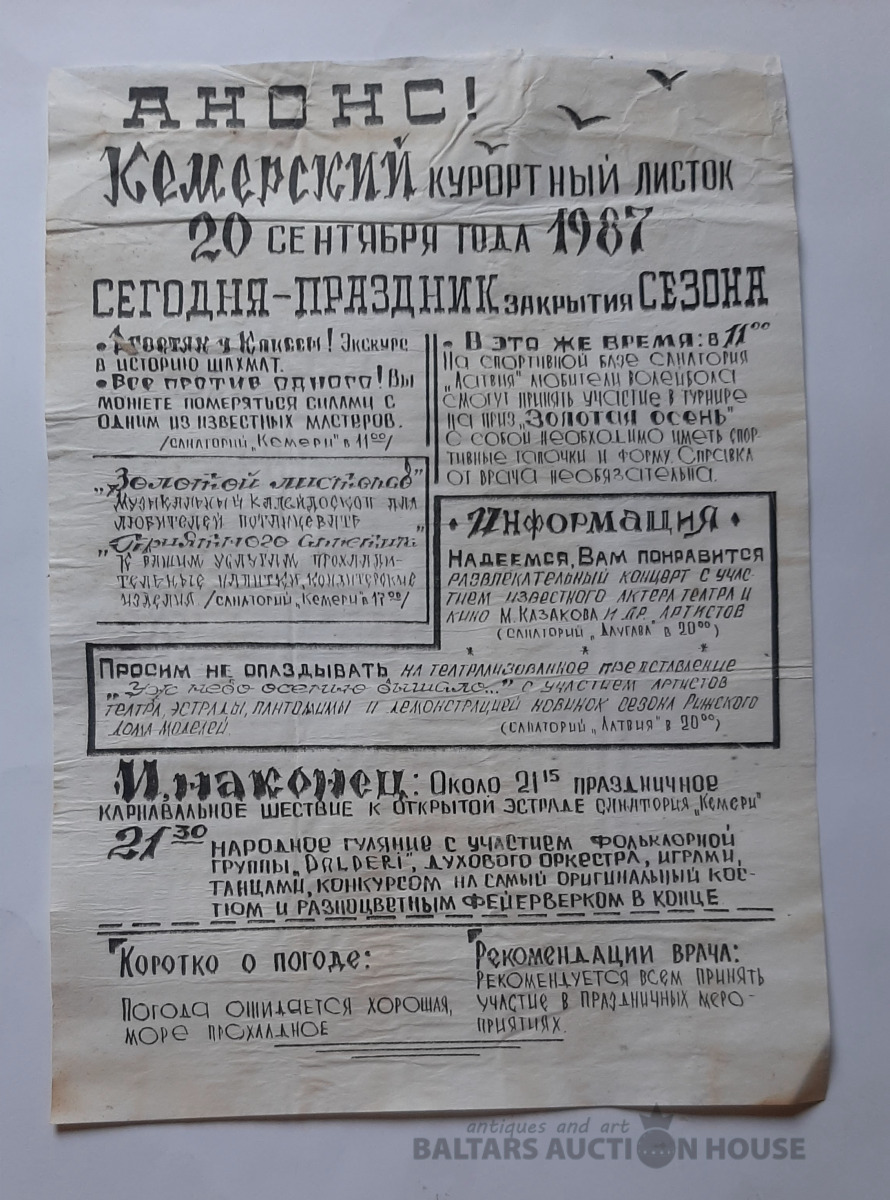 АНОНС!
Кемерский курортный листок
20 сентября года 1987
СЕГОДНЯ-ПРАЗДНИК закрытия СЕЗОНА
• В гостях у Каиссы! Экскурс
в историю шахмат.
• Все против одного! Вы
можете померяться силами с
одним из известных мастеров.
/санаторий „Кемери" в 11⁰⁰/
„Золотой листопад"
Музыкальный калейдоскоп для
любителей потанцевать
„Приятного аппетита"
К вашим услугам прохлади-
тельные напитки, кондитерские
изделия /санаторий „Кемери" в 17⁰⁰/
• В это же время: в 11⁰⁰
На спортивной базе санатория
„Латвия" любители волейбола
смогут принять участие в турнире
на приз „Золотая осень"
С собой необходимо иметь спор-
тивные тапочки и форму. Справка
от врача необязательна.
• Информация •
Надеемся, Вам понравится
развлекательный концерт с учас-
тием известного актера театра и
кино М. Казакова и др. артистов
(санаторий „Даугава" в 20⁰⁰)
* * *
Просим не опаздывать на театрализованное представление
„Уж небо осенью дышало..." с участием артистов
театра, эстрады, пантомимы и демонстрацией новинок сезона Рижского
дома моделей. (санаторий „Латвия" в 20⁰⁰)
И, наконец: Около 21¹⁵ праздничное
карнавальное шествие к открытой эстраде санатория „Кемери"
21³⁰ народное гуляние с участием фольклорной
группы „DĀLDERI", духового оркестра, играми,
танцами, конкурсом на самый оригинальный кос-
тюм и разноцветным фейерверком в конце
Коротко о погоде:
Погода ожидается хорошая,
море прохладное
Рекомендации врача:
Рекомендуется всем принять
участие в праздничных меро-
приятиях.
antiques and art
BALTARS AUCTION HOUSE